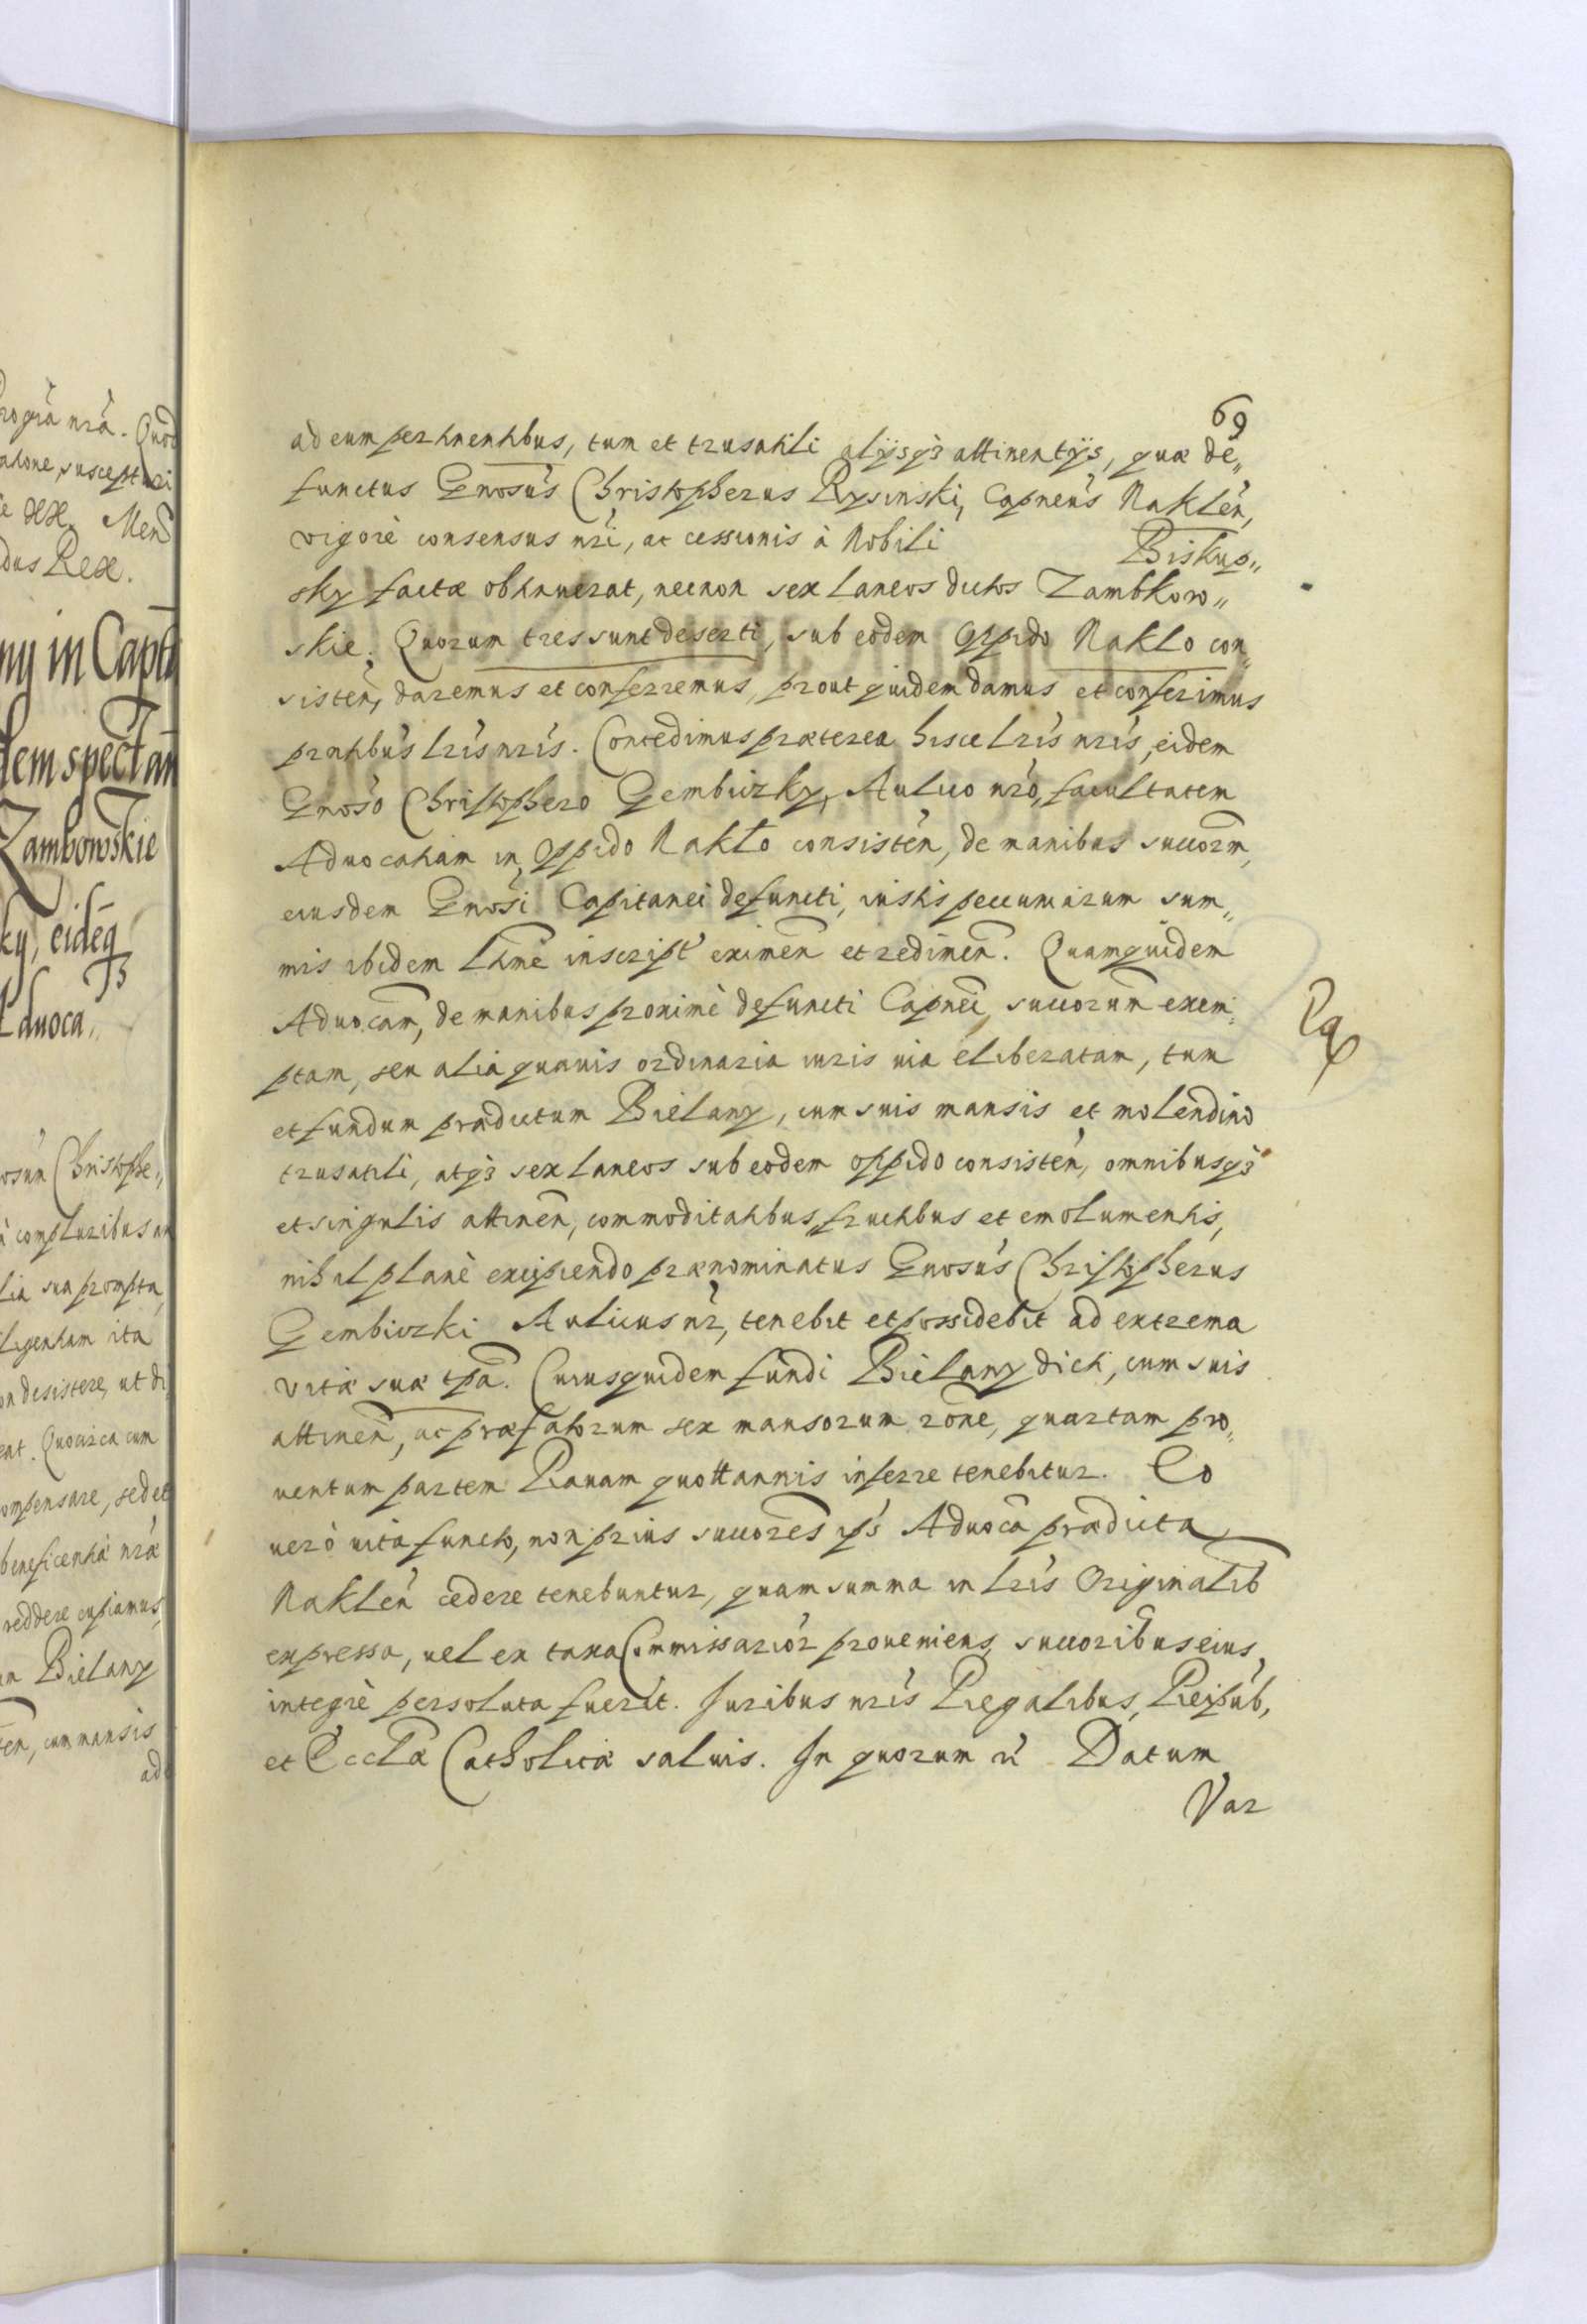 69
ad eum pertinentibus, tum et trusatili alijsq3 attinentijs, quæ de„
functus Gnosus Christopherus Rysinski, Capneus Naklen,
vigore consensus nri, ac cessionis à Nobili Biskup„
sky factæ obtinuerat, necnon sex laneos dictos Zambkow„
skie. Quorum tres sunt deserti, sub eodem Oppido Nakło con„
sisten, daremus et conferremus, prout quidem damus et conferimus
prntibus Lris nris. Concedimus præterea hisce Lris nris, eidem
Gnoso Christophero Gembiczky, Aulico nro, facultatem
Aduocatiam in Oppido Nakło consisten, de manibus succorm,
eiusdem Gnosi Capitanei defuncti, iustis pecuniarum sum„
mis ibidem Ltime inscript eximen et redimen. Quamquidem
Aduocam, de manibus proximè defuncti Capnei, succorum exem„
ptam, seu alia quauis ordinaria iuris uia eliberatam, tum
et fundum prædictum Bielany, cum suis mansis et molendino
trusatili, atq3 sex laneos sub eodem oppido consisten, omnibusq3
et singulis attinen, commoditatibus, fructibus et emolumentis,
nihil planè excipiendo prænominatus Gnosus Christopherus
Gembiczki Aulicus nr, tenebit et possidebit ad extrema
vitæ suæ tpa. Cuiusquidem fundi Bielany dicti, cum suis
attinen, ac præfatorum sex mansorum rone, quartam pro„
uentum partem Rauam quottannis inferre tenebitur. Eo
uerò uita functo, non prius succores ips Aduoca prædicta
Naklen cedere tenebuntur, quam summa in Lris Originalib
expressa, uel ex taxa Commissarior proueniens, succoribus eius,
integrè persoluta fuerit. Juribus nris Regalibus, Reipub,
et Eccla Catholicæ saluis. In quorum Datum
Var